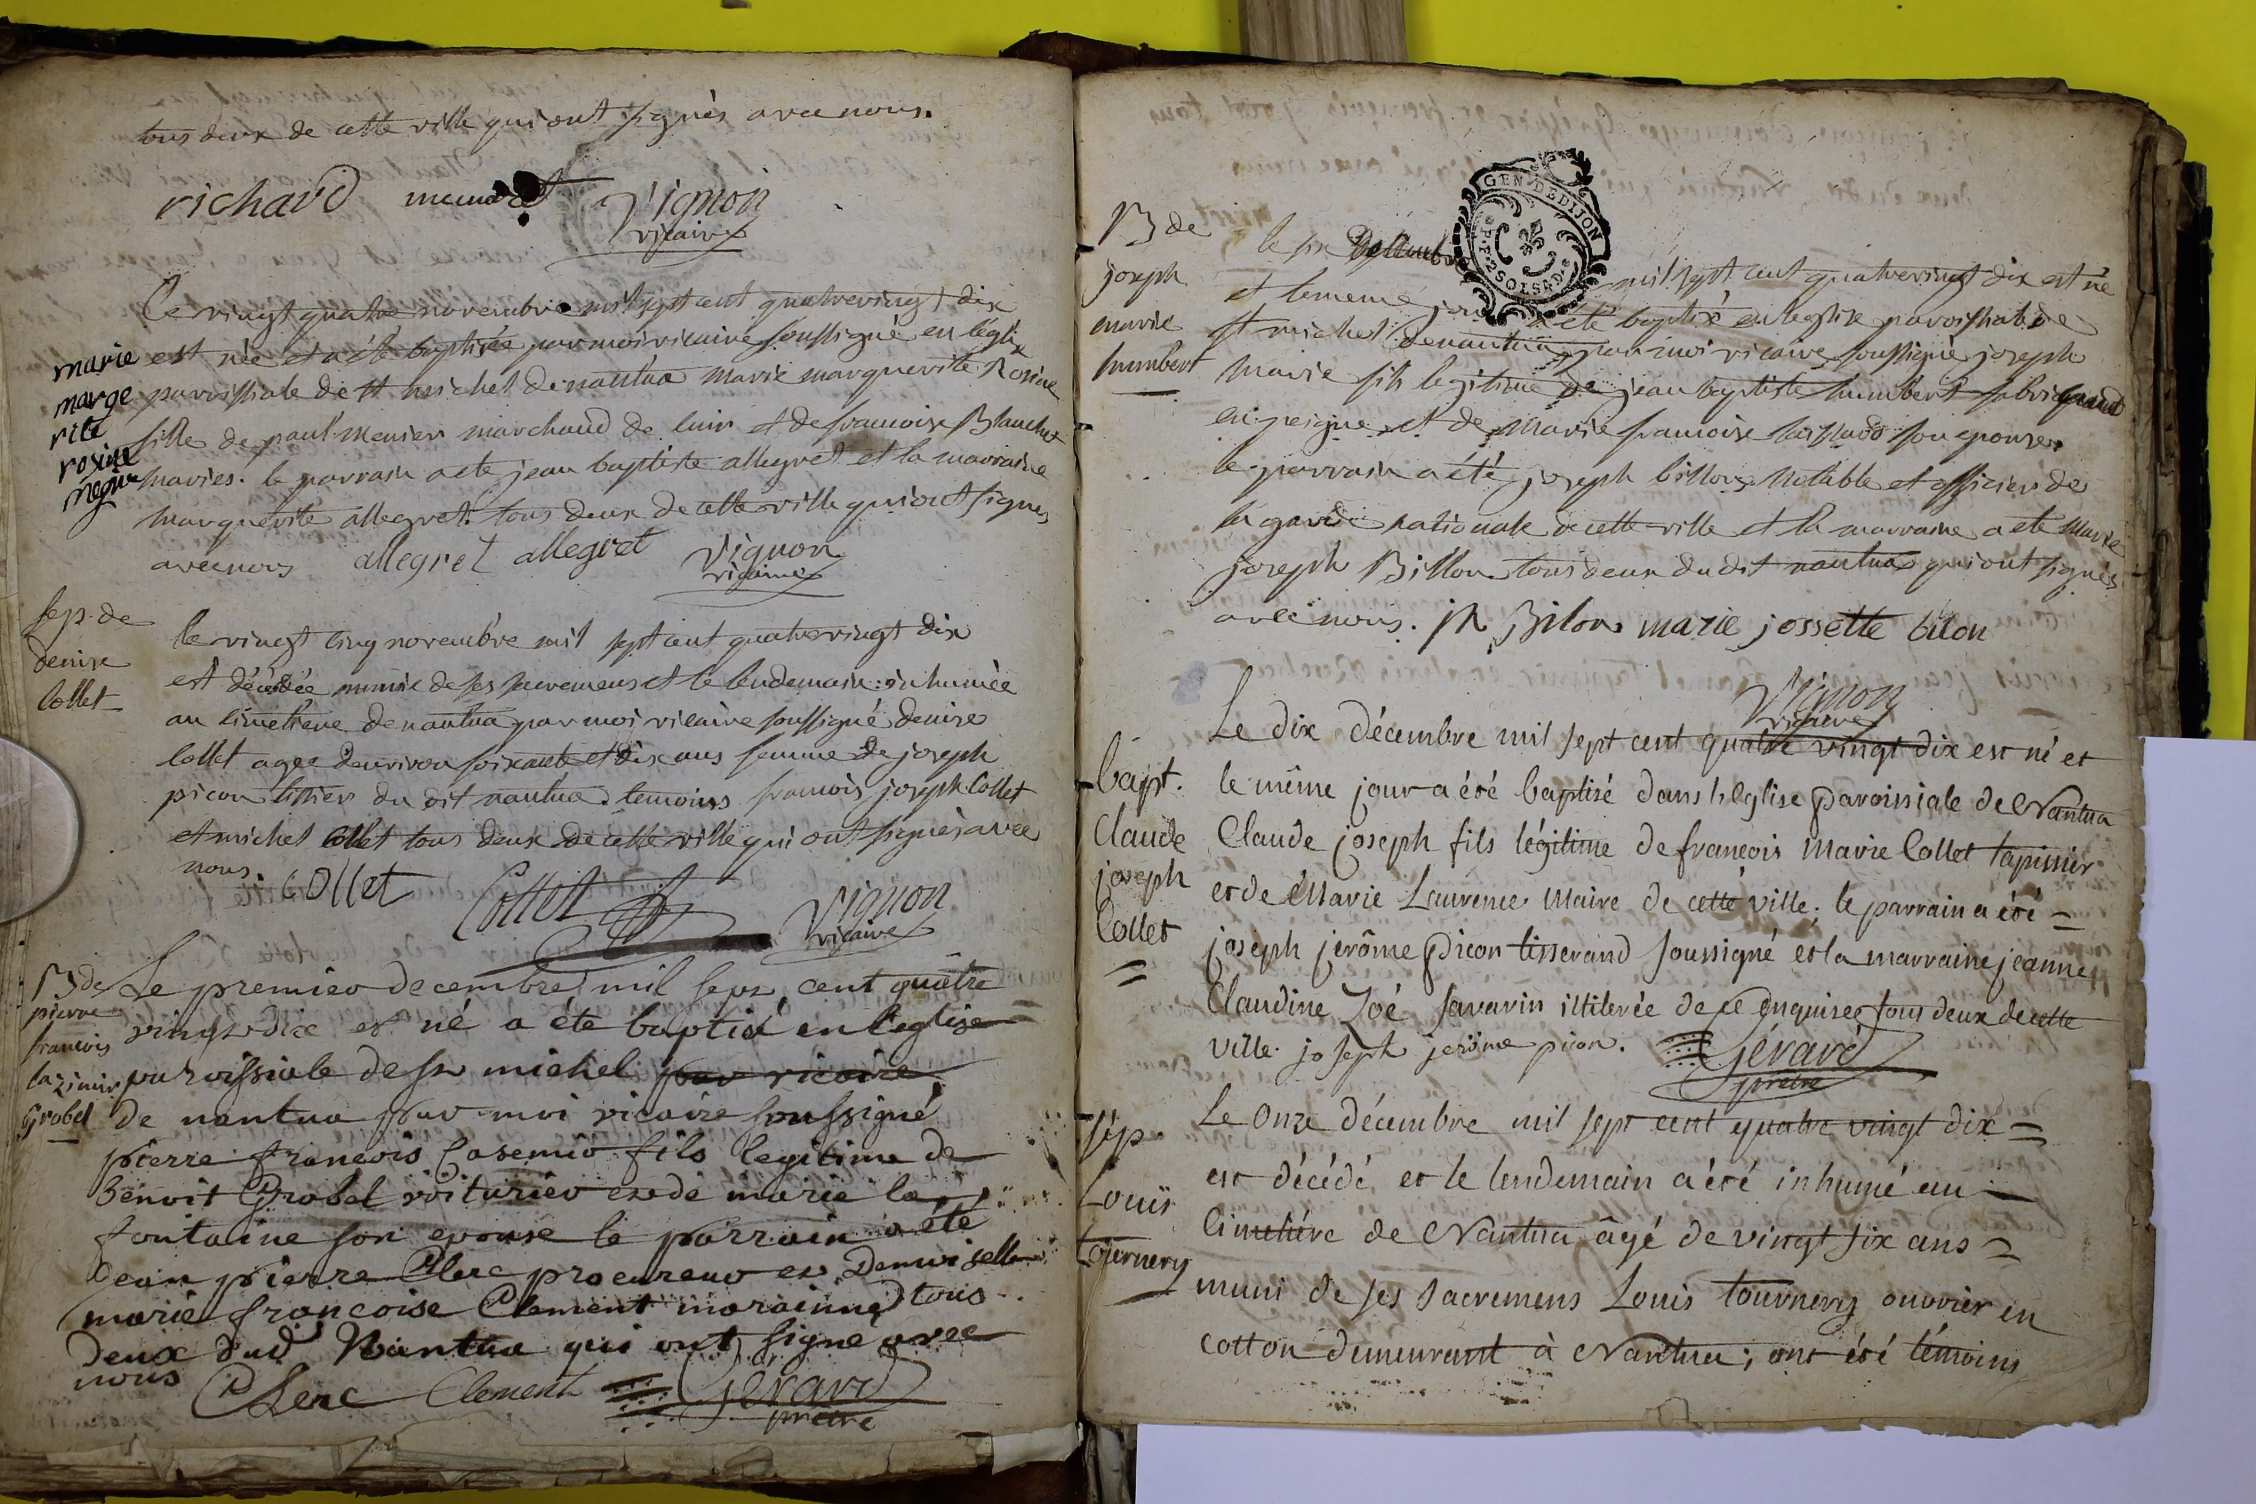 tous deux de cette ville qui ont signés avec nous.
richard Vignon
vicaire
Le vingt quatre novembre mil sept cent quatrevingt dix
marie
marge
rite
rosine
est née et a été baptisée par moi vicaire soussigné en l'égli
paroissiale de st michel de nantua marie marguerite Rosine
fille de paul Menier marchand de cuir et de francoise Blanchet
mariés. le parrain a eté jean baptiste allegret et la marraine
marguerite allegret. tous deux de cette ville qui ont signés
avec nous allegret allegret Vignon
vicaire
sep. de
denise
Collet
le vingt cinq novembre mil sept cent quatrevingt dix
est décédée munie de ses sacremens et le lendemain inhumée
au cimetiere de nantua par moi vicaire soussigné denise
Collet agée d'environ soixante et dix ans femme de joseph
picon tissier du dit nantua. temoins francois joseph Collet
et michel Collet tous deux de cette ville qui ont signés avec
nous. COllet Collet Vignon
vicaire
B de
pierre
francois
Cazimir
Grobel
Le premier decembre mil sept cent quatre
vingt dix est né a éte baptisé en l'eglise
paroissiale de st michel par vicaire
de nantua par moi vicaire soussigné
pierre francois Casemir fils legitime de
benoit Grobel voiturier et de marie la
fontaine son epouse le parrain a été
jean pierre Clerc procureur et Demoiselle
marie francoise Clement maraine tous
deux dud Nantua qui ont signé avec
nous Clerc Clement Gérard
prêtre
GEN. DE DIJON
2 SOLS 8 D.
B de
joseph
marie
humbert
le six Decembre mil sept cent quatrevingt dix est né
et le meme jour a été baptisé en l'eglise paroissiale de
st michel de nantua par moi vicaire soussigné joseph
marie fils legitime de jean baptiste humbert fabriquant
en peigne et de marie francoise son epouse.
le parrain a été joseph billon notable et officier de
la garde nationale de cette ville et la marraine a eté marie
joseph Billon tous deux du dit nantua qui ont signés
avec nous. Bilon marie jossette bilon
Vignon
vicaire
bapt.
Claude
joseph
Collet
Le dix décembre mil sept cent quatre vingt dix est né et
le même jour a été baptisé dans l'Eglise paroissiale de Nantua
Claude joseph fils légitime de francois Marie Collet tapissier
et de Marie Laurence Maire de cette ville; le parrain a été =
joseph jerôme picon tisserand soussigné et la marraine jeanne
Claudine Zoé Savarin illiterée de ce enquise tous deux de cette
ville. joseph jerôme picon. Gérard
prêtre
sép
Louis
tournery
Le Onze décembre mil sept cent quatre vingt dix =
est décédé et le lendemain a été inhumé au
Cimetière de Nantua âgé de vingt six ans =
muni de ses sacremens Louis tournery ouvrier en
cotton demeurant à Nantua; ont été témoins